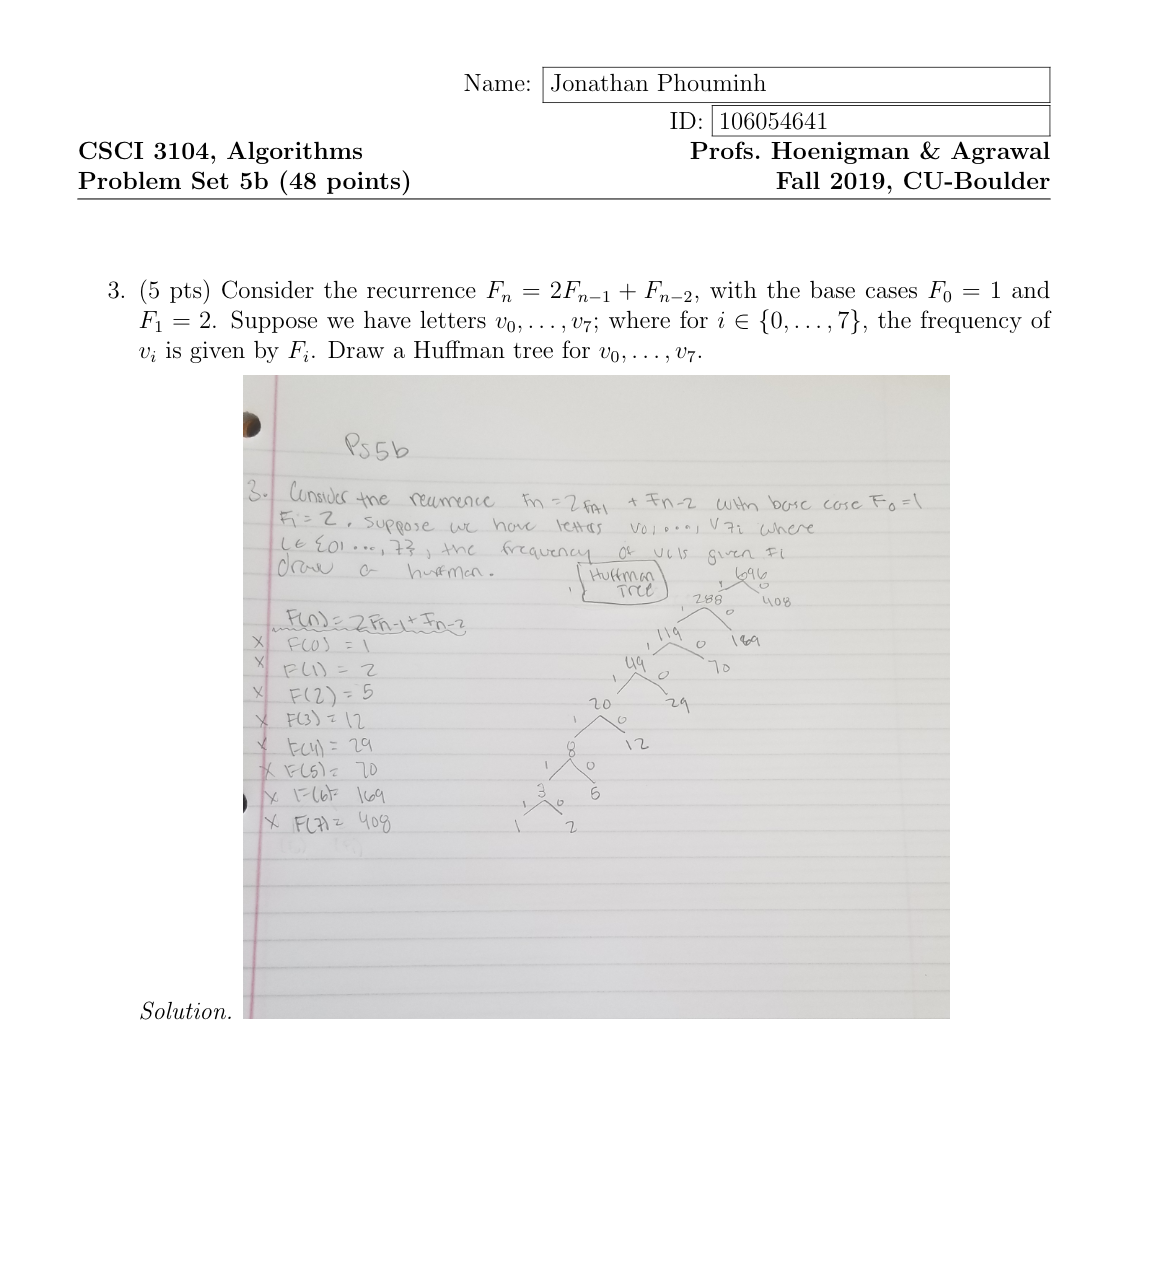 Name: Jonathan Phouminh
ID: 106054641
CSCI 3104, Algorithms
Profs. Hoenigman & Agrawal
Problem Set 5b (48 points)
Fall 2019, CU-Boulder
3. (5 pts) Consider the recurrence Fₙ = 2Fₙ₋₁ + Fₙ₋₂, with the base cases F₀ = 1 and
F₁ = 2. Suppose we have letters v₀, . . . , v₇; where for i ∈ {0, . . . , 7}, the frequency of
vᵢ is given by Fᵢ. Draw a Huffman tree for v₀, . . . , v₇.
Ps5b
3. Consider the recurrence Fn = 2Fn-1 + Fn-2 with base case F₀ = 1
F₁ = 2. suppose we have letters v₀, ..., v7; where
i ∈ {01 ..., 7}, the frequency of vi is given Fi
draw a huffman.
Huffman
Tree
F(n) = 2Fn-1 + Fn-2
x F(0) = 1
x F(1) = 2
x F(2) = 5
x F(3) = 12
x F(4) = 29
x F(5) = 70
x F(6) = 169
x F(7) = 408
696
1 0
288 408
1 0
119 169
1 0
49 70
1 0
20 29
1 0
8 12
1 0
3 5
1 0
1 2
Solution.